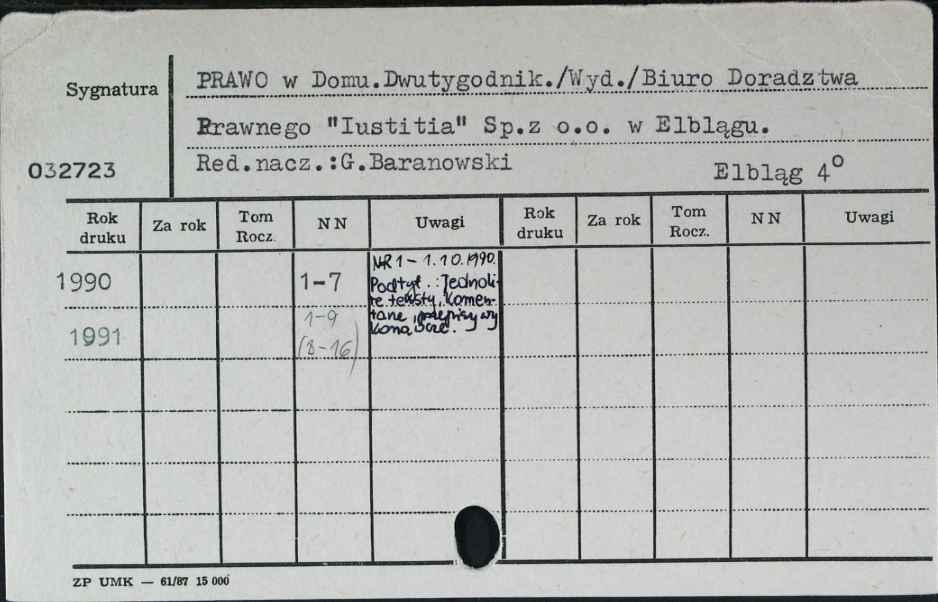 Sygnatura
PRAWO w Domu.Dwutygodnik./Wyd./Biuro Doradztwa
Prawnego "Iustitia" Sp.z o.o. w Elblągu.
032723
Red.nacz.:G.Baranowski
Elbląg 4º
Rok druku Za rok Tom Rocz. N N Uwagi Rok druku Za rok Tom Rocz. N N Uwagi
1990 1-7
NR 1 - 1.10.1990.
Podtyt.: Jednoli-
te teksty, komen-
tarze, przepisy wy
konawcze.
1991 1-9
(8-16)
ZP UMK — 61/87 15 000